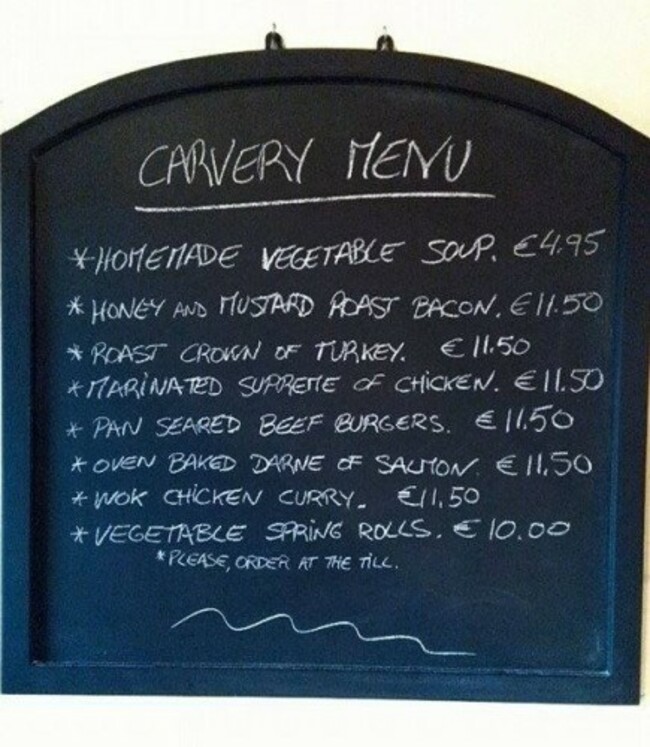 CARVERY MENU
*HOMEMADE VEGETABLE SOUP. €4.95
* HONEY AND MUSTARD ROAST BACON. €11.50
* ROAST CROWN OF TURKEY. €11.50
* MARINATED SUPREME OF CHICKEN. €11.50
* PAN SEARED BEEF BURGERS. €11.50
* OVEN BAKED DARNE OF SALMON. €11,50
* WOK CHICKEN CURRY. €11,50
* VEGETABLE SPRING ROLLS. €10.00
*PLEASE, ORDER AT THE TILL.